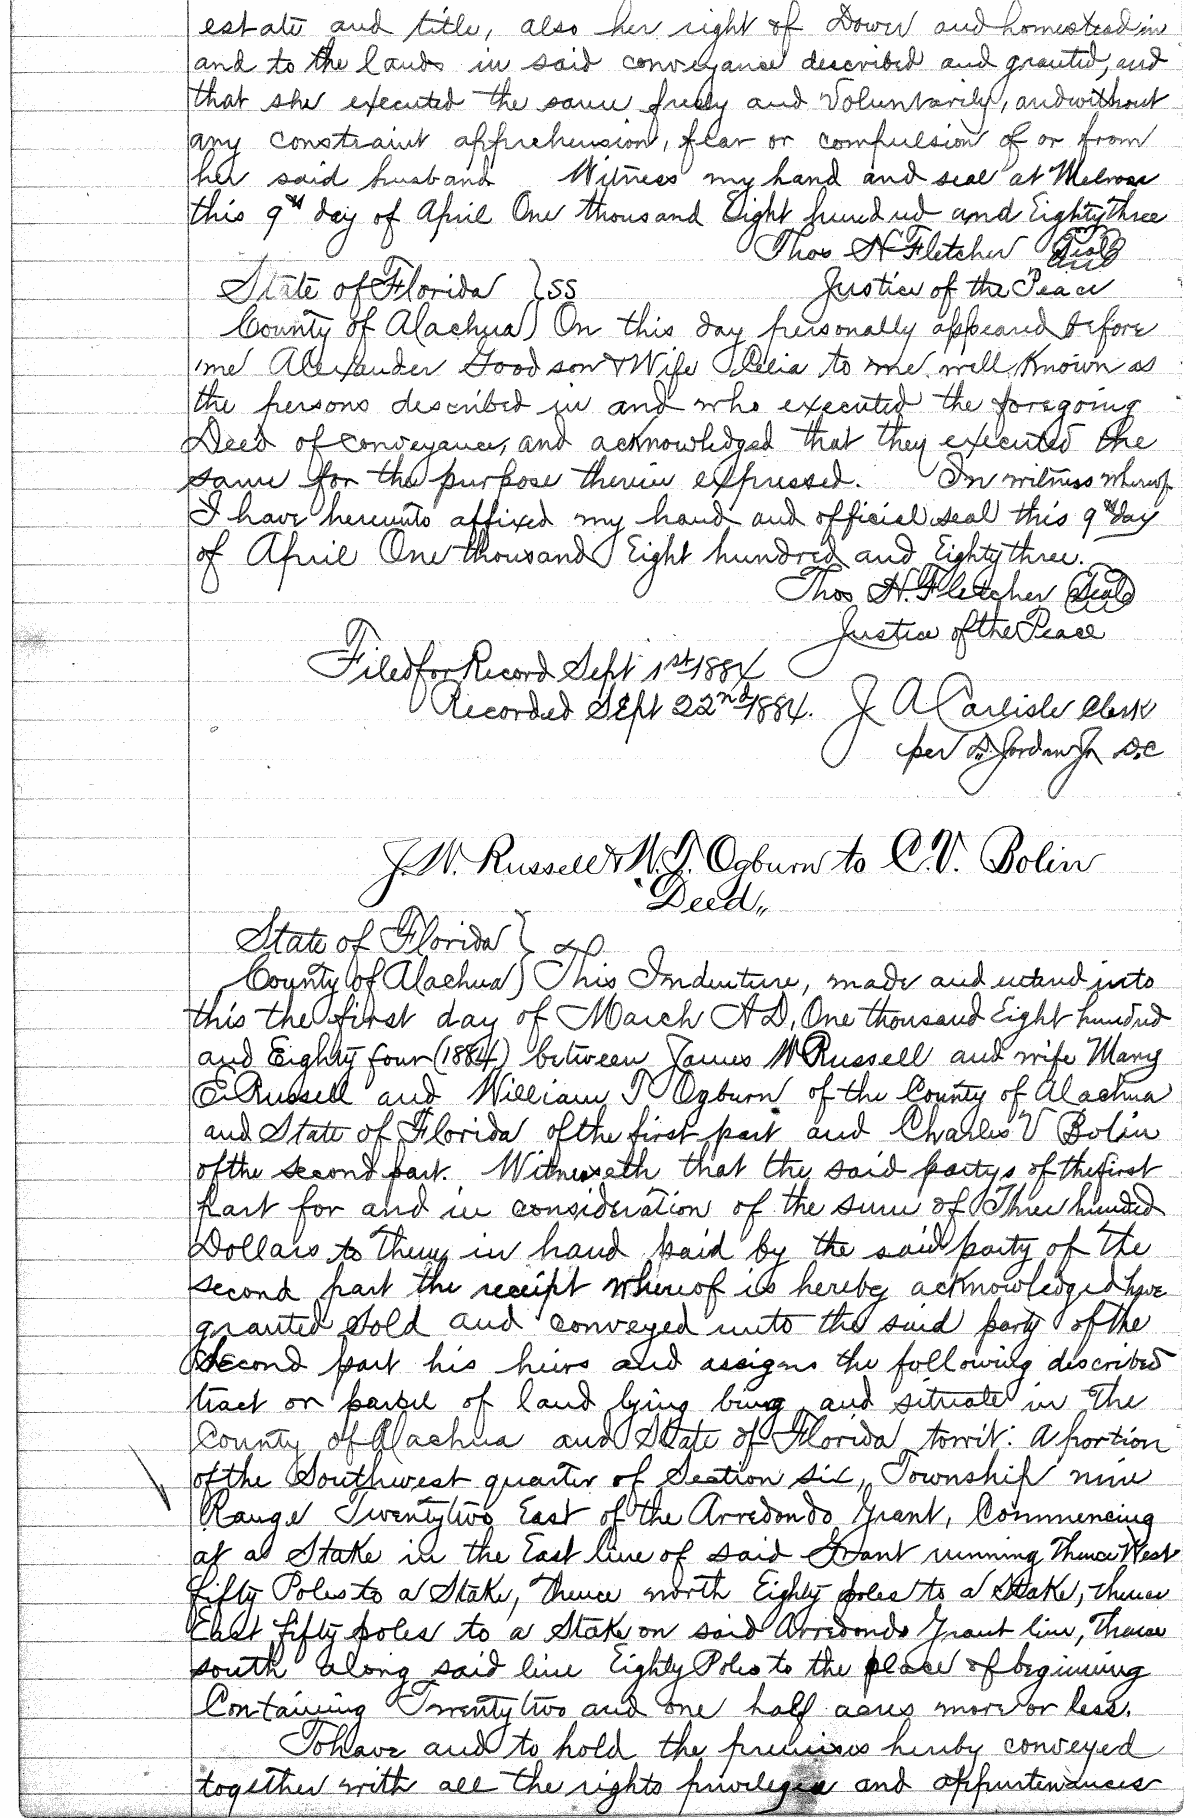 estate and title, also her right of Dower and homestead in
and to the lands in said conveyance described and granted, and
that she executed the same freely and Voluntarily, and without
any constraint apprehension, fear or compulsion of or from
her said husband Witness my hand and seal at Melrose
this 9th day of April One thousand Eight hundred and Eighty three
Thos H Fletcher Seal
State of Florida } SS Justice of the Peace
County of Alachua } On this day personally appeared before
me Alexander Goodson & Wife Celia to me well Known as
the persons described in and who executed the foregoing
Deed of conveyance, and acknowledged that they executed the
same for the purpose therein expressed. In witness whereof
I have hereunto affixed my hand and official seal this 9th day
of April One thousand Eight hundred and Eighty three.
Thos H. Fletcher Seal
Justice of the Peace
Filed for Record Sept 1st 1884
Recorded Sept 22nd 1884. J A Carlisle Clerk
per Jordan Jr D.C
J. W. Russell & W. T. Ogburn to C. V. Bolin
Deed,,
State of Florida }
County of Alachua } This Indenture, made and entered into
this the first day of March A D, One thousand Eight hundred
and Eighty four (1884) between James W Russell and wife Mary
E. Russell and William T Ogburn of the County of Alachua
and State of Florida of the first part and Charles V Bolin
of the second part. Witnesseth that the said partys of the first
part for and in consideration of the sum of Three hundred
Dollars to them in hand paid by the said party of the
second part the receipt whereof is hereby acknowledged have
granted Sold and conveyed unto the said party of the
Second part his heirs and assigns the following described
tract or parcel of land lying being and situate in The
County of Alachua and State of Florida towit: A portion
of the Southwest quarter of Section six, Township nine
Range Twentytwo East of the Arredondo Grant, Commencing
at a Stake in the East line of said Grant running Thence West
fifty Poles to a Stake, thence north Eighty poles to a Stake, thence
East fifty poles to a Stake on said Arredondo Grant line, Thence
south along said line Eighty Poles to the place of beginning
Containing Twentytwo and one half acres more or less.
To have and to hold the premises hereby conveyed
together with all the rights privileges and appurtenances